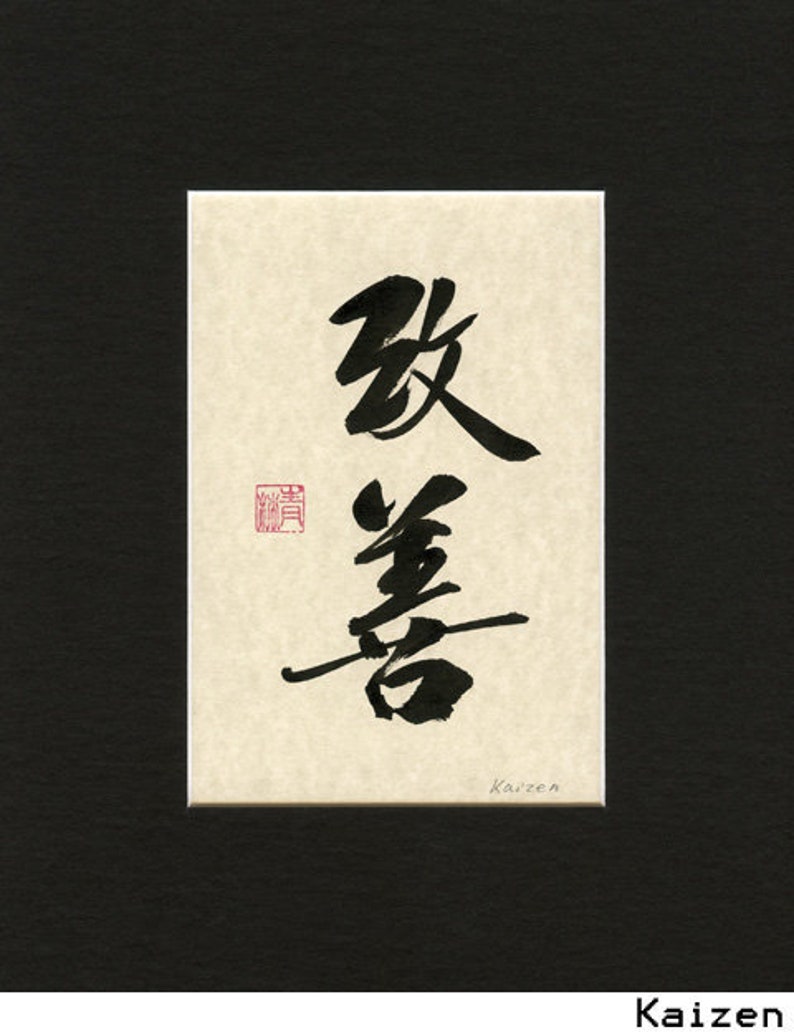 改
善
Kaizen
Kaizen